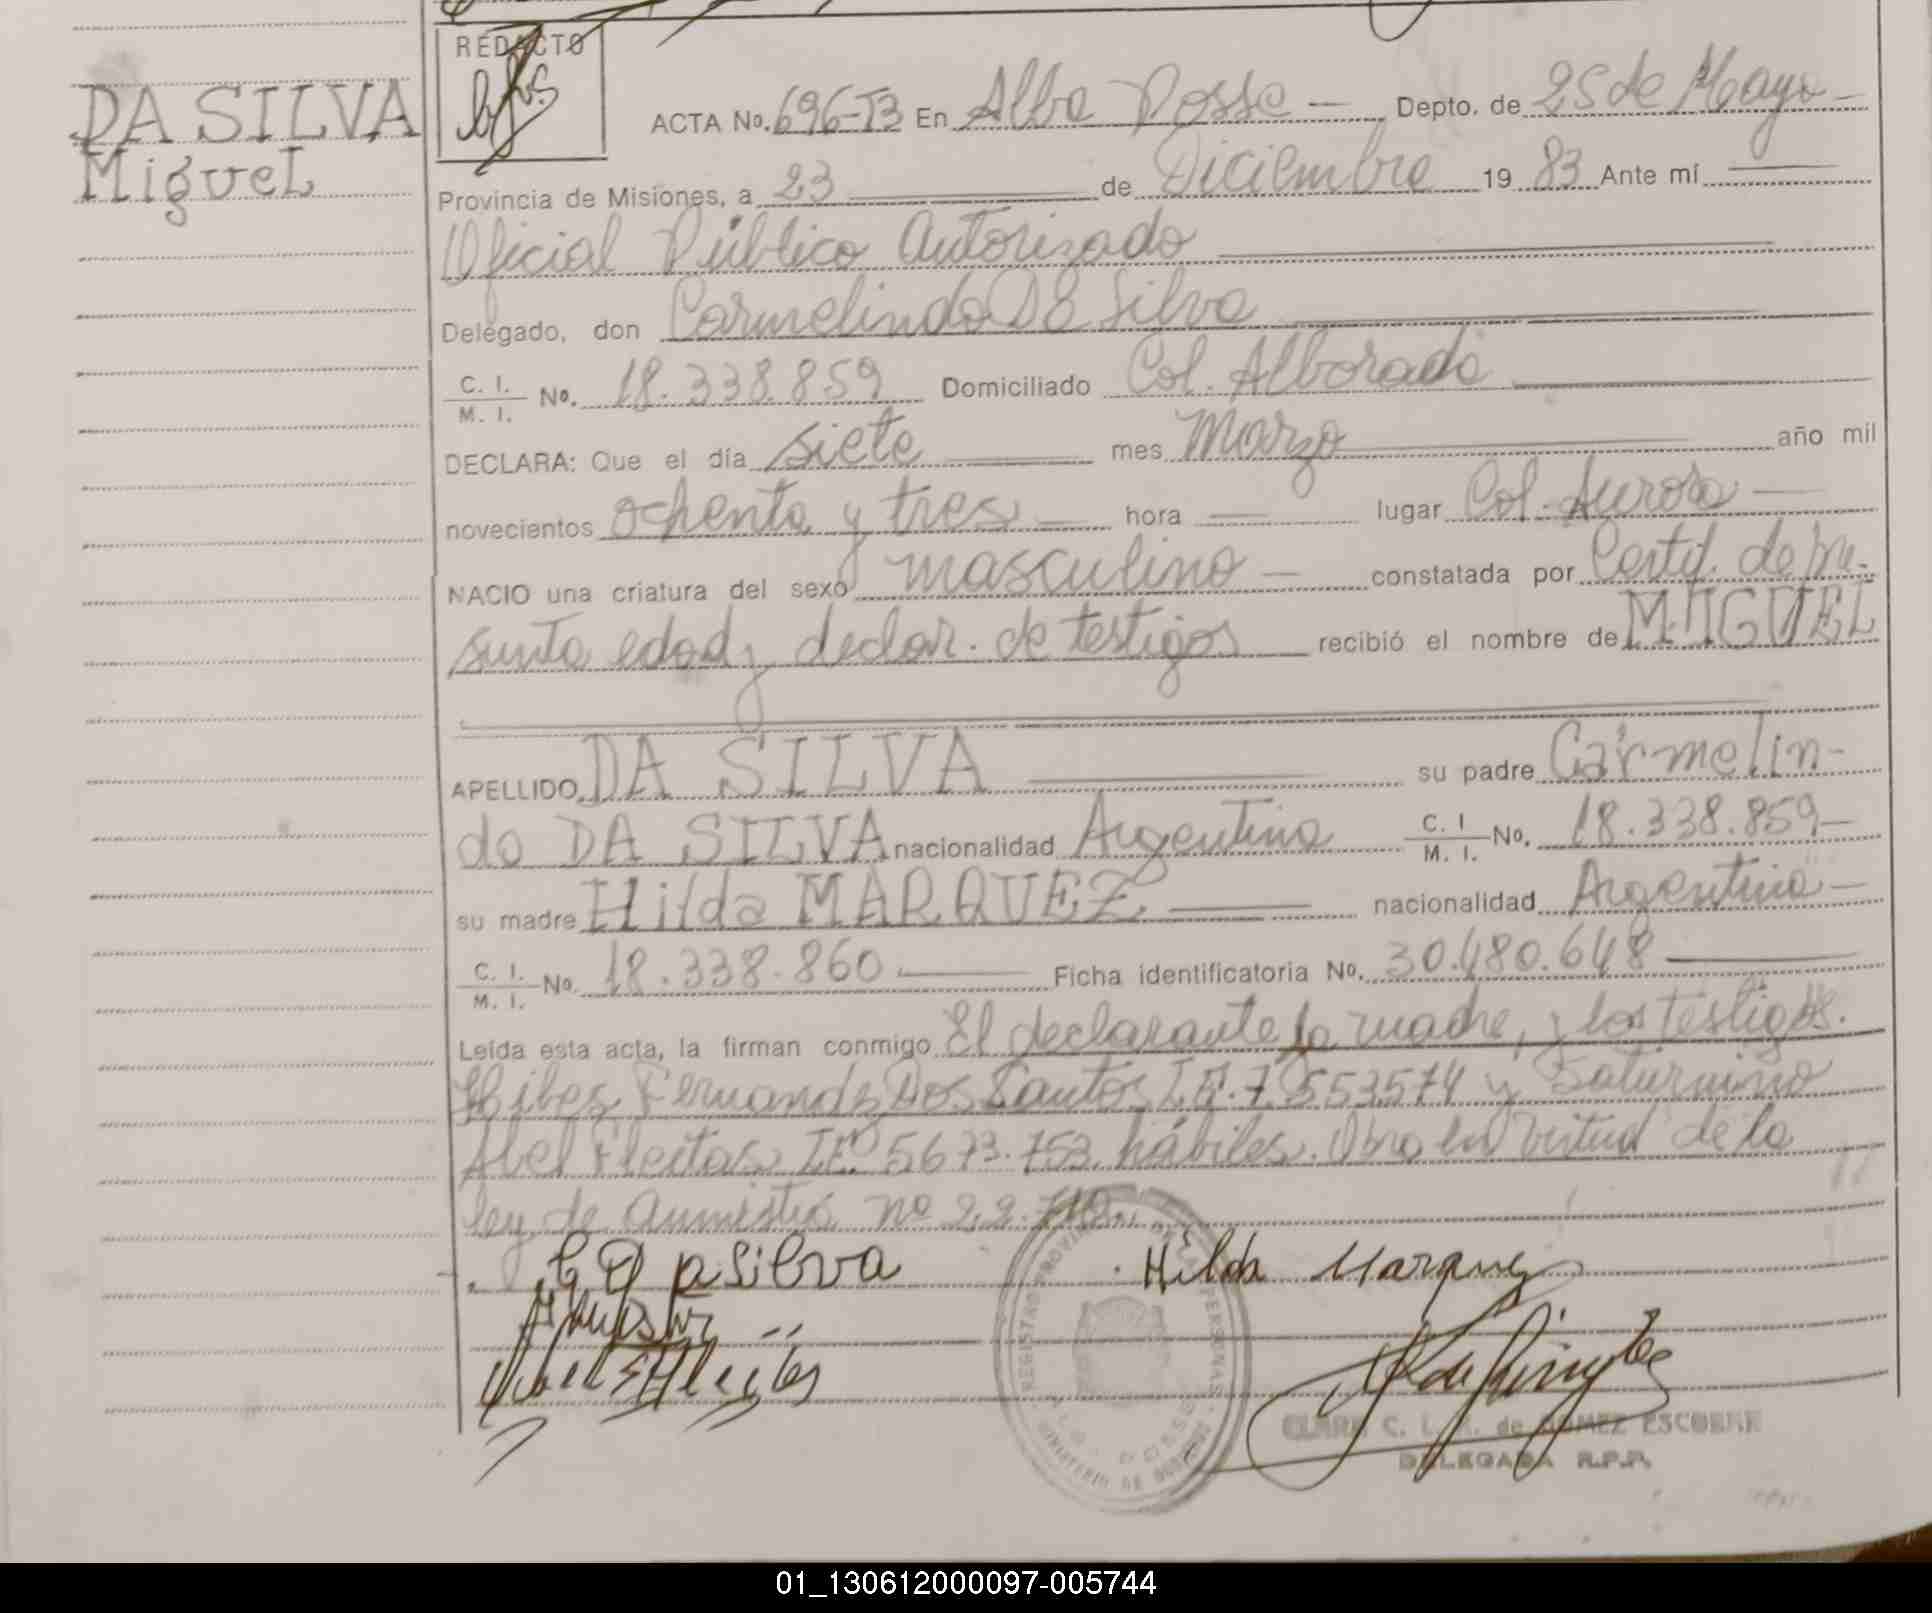 DA SILVA
Miguel
REDACTO
ACTA No. 696-T3 En Alba Posse — Depto. de 25 de Mayo —
Provincia de Misiones, a 23 de Diciembre 19 83 Ante mí
Oficial Público Autorizado
Delegado, don Carmelindo DA Silva
C. I. / M. I. No. 18.338.859 Domiciliado Col. Alborada
DECLARA: Que el día siete mes Marzo año mil
novecientos ochenta y tres — hora — lugar Col. Aurora —
NACIO una criatura del sexo masculino — constatada por Certif. de pre-
sunta edad y declar. de testigos recibió el nombre de MIGUEL
APELLIDO DA SILVA su padre Carmelin-
do DA SILVA nacionalidad Argentina C. I. / M. I. No. 18.338.859—
su madre Hilda MARQUEZ nacionalidad Argentina —
C. I. / M. I. No. 18.338.860 Ficha identificatoria No. 30.480.648
Leída esta acta, la firman conmigo El declarante la madre, y los testigos.
Fernandez Dos Santos I.E. 7.553574 y Saturnino
Abel Fleitas I.E. 5673.753. hábiles. Obro en virtud de la
ley de amnistía nº 22.710.
C D a Silva
Hilda Marquez
REGISTRO PROVINCIAL DE LAS PERSONAS
MINISTERIO DE GOBIERNO
CLARA C. L. R. de GOMEZ ESCOBAR
DELEGADA R.P.P.
01_130612000097-005744